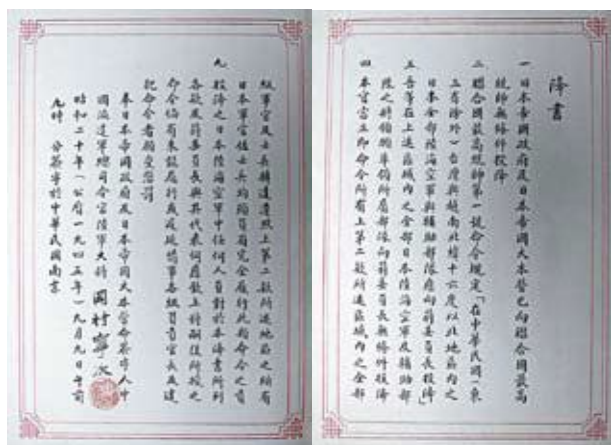 降書
一 日本帝國政府及日本帝國大本營已向聯合國最高
統帥無條件投降
二 聯合國最高統帥第一號命令規定「在中華民國（東
三省除外）台灣與越南北緯十六度以北地區內之
日本全部陸海空軍與輔助部隊應向蔣委員長投降」
三 吾等在上述區域內之全部日本陸海空軍及輔助部
隊之將領願率領所屬部隊向蔣委員長無條件投降
四 本官當立即命令所有上第二款所述區域內之全部
級軍官及士兵轉達遵照上第二款所述地區之所有
日本軍官佐士兵均須負有完全履行此類命令之責
九 投降之日本陸海空軍中任何人員對於本降書所列
各款及蔣委員長與其代表何應欽上將嗣後所授之
命令倘有未能履行或遲延情事各級負責官長及違
犯命令者願受懲罰
奉日本帝國政府及日本帝國大本營命簽字人中
國派遣軍總司令官陸軍大將 岡村寧次
昭和二十年（公曆一九四五年）九月九日午前
九時 分簽字於中華民國南京